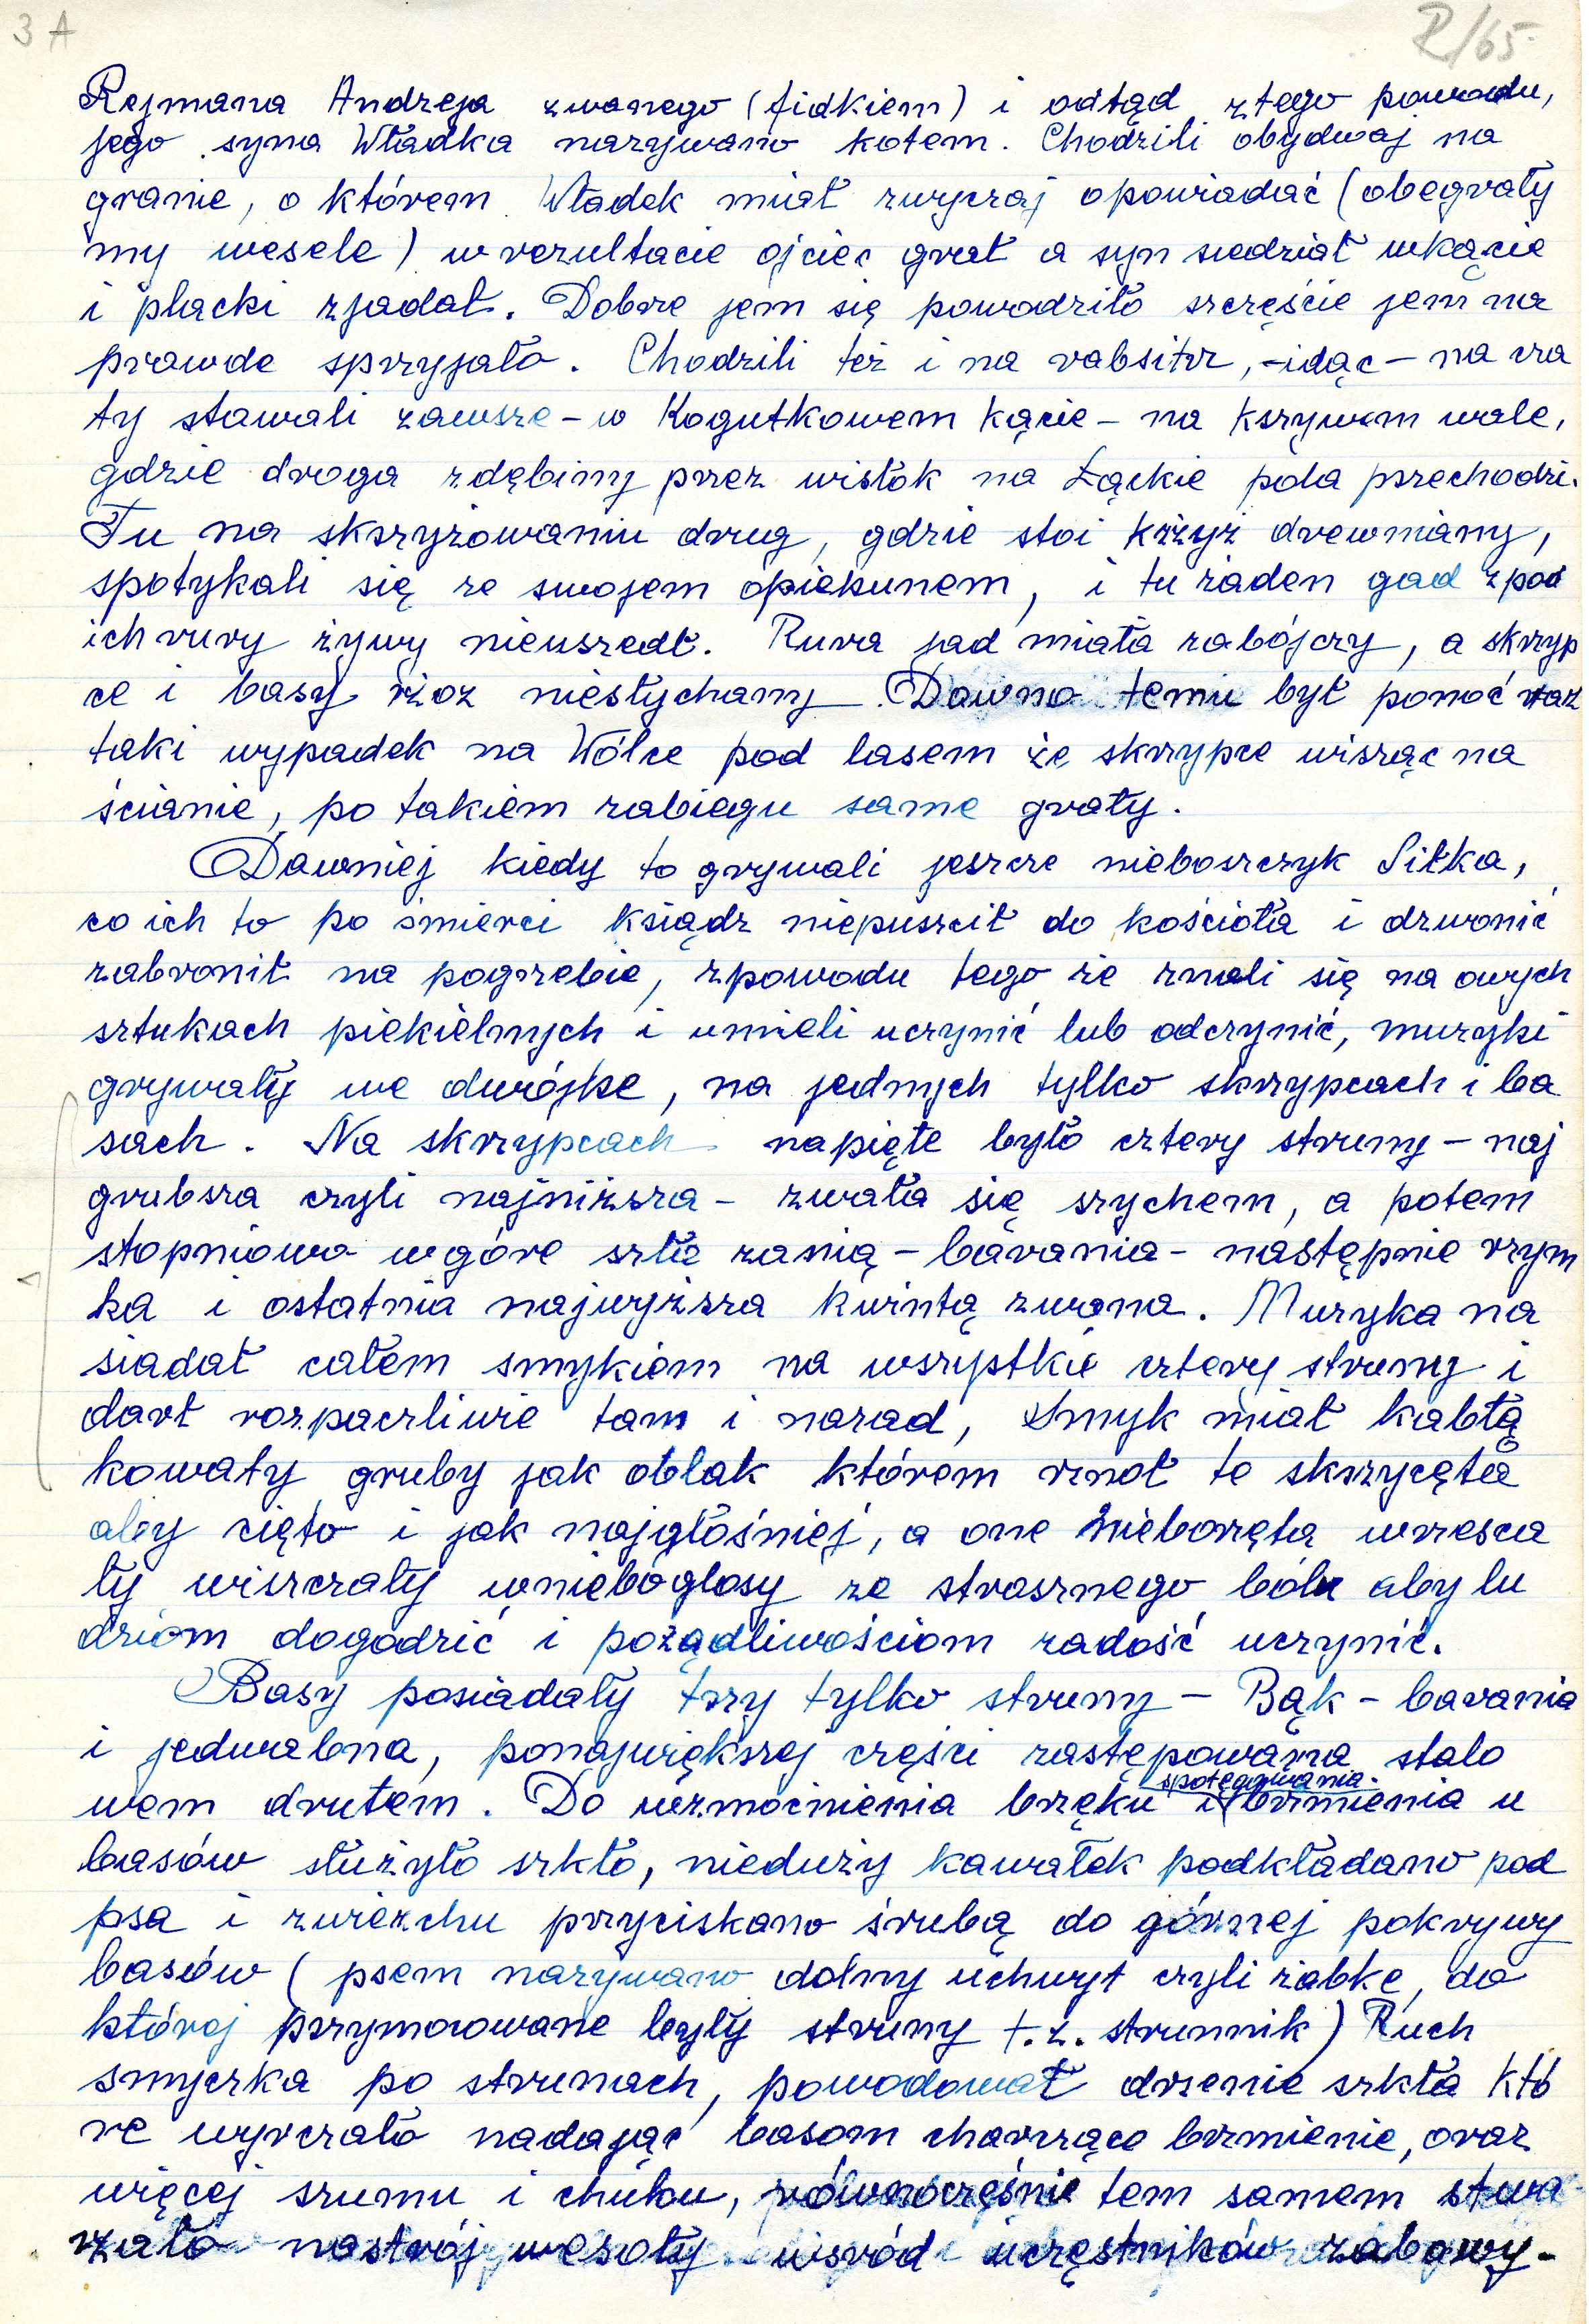 3 A
R/65.
Rejmana Andreja zwanego (fidkiem) i odtąd ztego powodu,
jego syna Władka nazywano kotem. Chodzili obydwaj na
granie, o którem Władek miał zwyczaj opowiadać (obegrały
my wesele) w rezultacie ojciec grał a syn siedział wkącie
i placki zjadał. Dobrze jem się powodziło szczęście jem na
prawde sprzyjało. Chodzili też i na rabsitz, - idąc - na cza
ty stawali zawsze - w Kogutkowem kącie - na kszywem wale,
gdzie droga zdębiny przez wisłok na Łąckie pola pszechodzi.
Tu na skszyżowaniu drug, gdzie stoi kżyż drewniany,
spotykali się ze swojem opiekunem, i tu żaden gad zpod
ich rury żywy nieuszedł. Rura jad miała zabójczy, a skrzyp
ce i basy rżoz niesłychany. Dawno temu był ponoć raz
taki wypadek na Wólce pod lasem że skrzypce wisząc na
ścianie, po takiem zabiegu same grały.
Dawniej kiedy to grywali jeszcze nieboszczyk Siłka,
co ich to po śmierci ksiądz niepuszcił do kościoła i dzwonić
zabronił na pogrzebie, zpowodu tego że znali się na owych
sztukach piekielnych i umieli uczynić lub odczynić, muzyki
grywały we dwójke, na jednych tylko skrzypcach i ba
sach. Na skrzypcach napięte było cztery struny - naj
grubsza czyli najniższa - zwała się szychem, a potem
stopniowo wgóre szła zanią - barania - następnie rzym
ka i ostatnia najwyższa kwintą zwana. Muzyka na
siadał całem smykiem na wszystkie cztery struny i
darł rozpaczliwie tam i nazad, Smyk miał kabłą
kowaty gruby jak obłak którem rznoł te skszycęta
aby cięto i jak najgłośniej, a one nieborzęta wrzesca
ły wiszczały wniebogłosy ze strasznego bólu aby lu
dziom dogodzić i pożądliwościom radość uczynić.
Basy posiadały tszy tylko struny - Bąk - barania
i jedwabna, ponajwiększej części zastępowana stalo
wem drutem. Do wzmocnienia brzęku i brzmienia u
spotęgowania.
basów służyło szkło, nieduży kawałek podkładano pod
psa i zwierzchu przyciskano śrubą do górnej pokrywy
basów (psem nazywano dolny uchwyt czyli żabkę, do
której pszymocowane były struny t.z. strunnik) Ruch
smyczka po strunach, powodował drżenie szkła któ
re wyrczało nadając basom charczące brzmienie, oraz
więcej szumu i chuku, równocześnie tem samem stwa
rzało nastrój wesoły wsród uczęstników zabawy.-